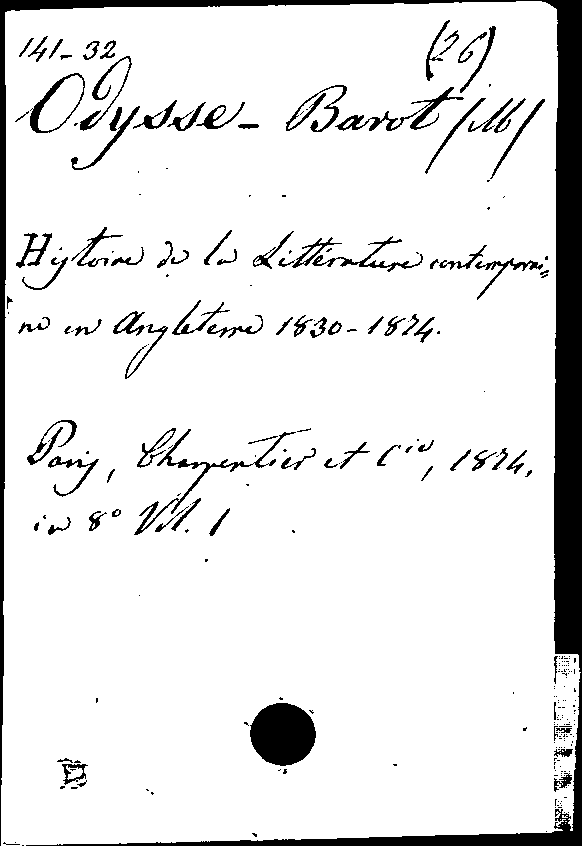 141-32 (26)
Odysse-Barot (M)
Histoire de la Littérature contemporai=
ne en Angleterre 1830-1874.
Paris, Charpentier et Cie, 1874,
in 8° Vol. 1